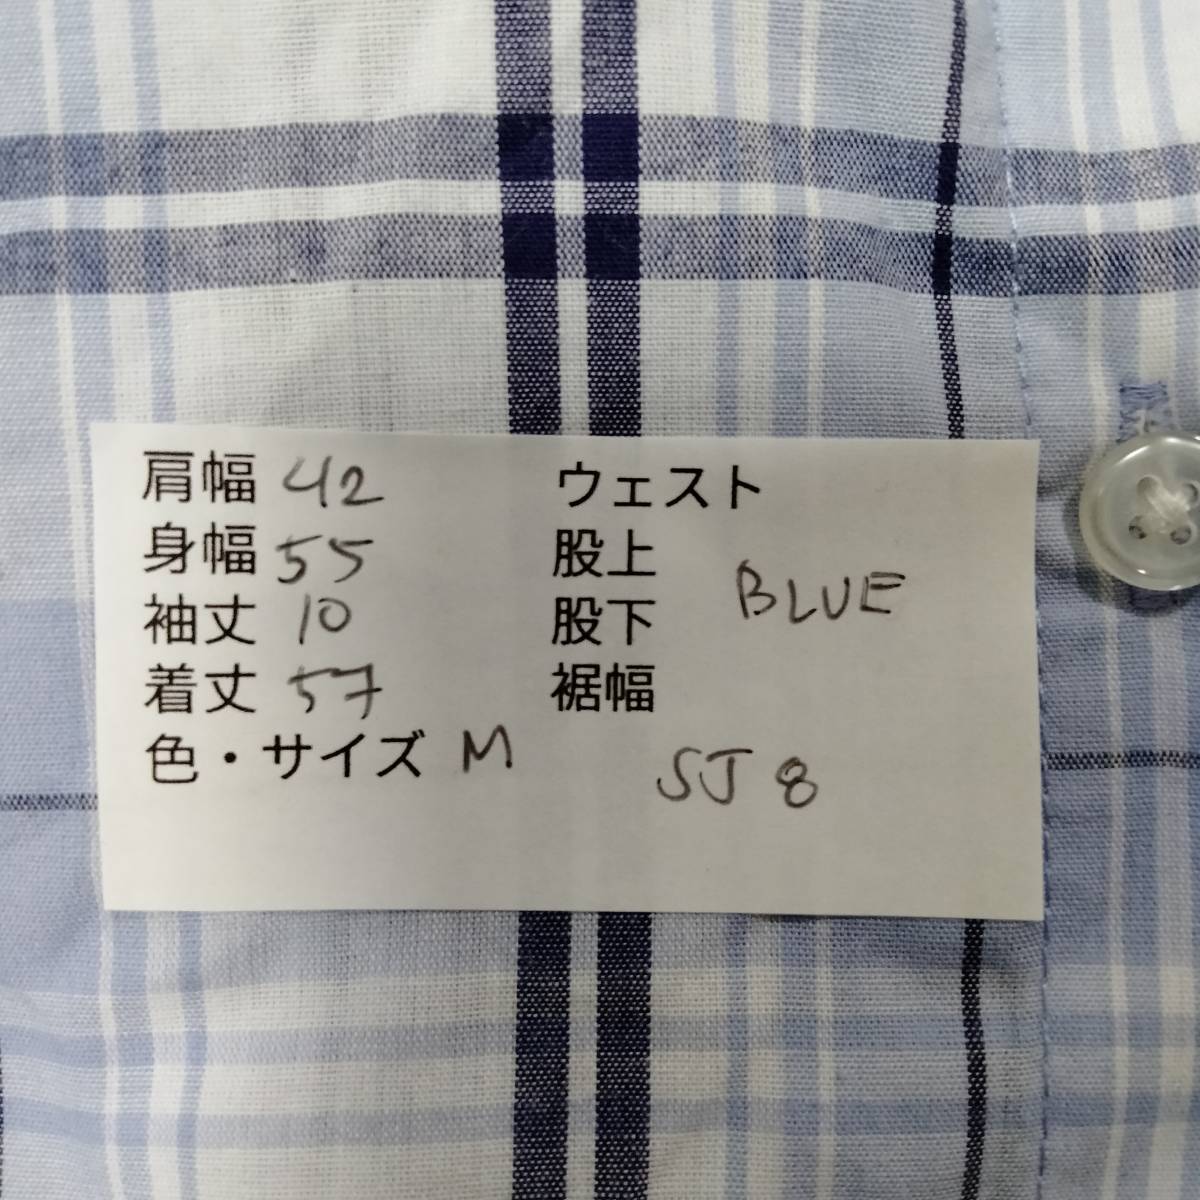 肩幅 42 ウェスト
身幅 55 股上
BLUE
袖丈 10 股下
着丈 57 裾幅
色・サイズ M
SJ 8